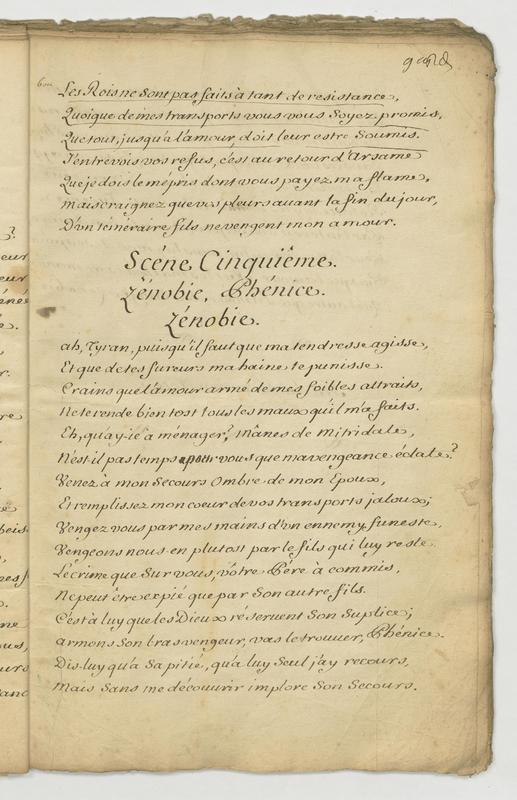 Les Rois ne sont pas faits à tant de resistance,
Quoique de mes transports vous vous soyez promis,
Que tout, jusqu'a l'amour, doit leur estre soumis.
J'entrevois vos refus, c'est au retour d'Arsame
Que je dois le mépris dont vous payez ma flame,
Mais craignez que vos pleurs avant la fin du jour,
D'un téméraire fils ne vengent mon amour.
Scéne Cinquiême.
Zénobie, Phénice.
Zénobie.
ah, Tyran, puisqu'il faut que ma tendresse agisse,
Et que de tes fureurs ma haine te punisse
Crains que l'amour armé de mes foibles attraits,
Ne te rende bien tost tous les maux qu'il m'a faits.
Eh, qu'ay-ie à ménager? mânes de Mitridate,
N'est-il pas temps pour vous que ma vengeance éclate?
Venez à mon Secours Ombre de mon Epoux,
Et remplissez mon coeur de vos transports jaloux;
Vengez vous par mes mains d'vn ennemy funeste,
Vengeons nous en plutost par le fils qui luy reste
Le crime que sur vous, vôtre Pére à commis,
Ne peut être expié que par son autre fils.
C'est à luy que les Dieux réservent son suplice;
armons son bras vengeur, vas le trouver, Phénice.
Dis-luy qu'a sa pitié, qu'a luy seul j'ay recours,
Mais sans me découvrir implore son secours.